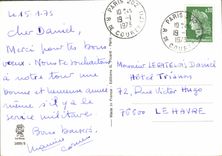 Le 15.1.73
Cher Daniel,
Merci pour tes bons
voeux. Nous te souhaitons
à notre tour une
bonne et heureuse année
même s'il y a le
service militaire.
Bons Baisers.
PARIS
19-1
1973
COURC
PARIS
19-1
1973
COURC
Monsieur
Hôtel Trianon
72, Rue Victor Hugo
LE HAVRE